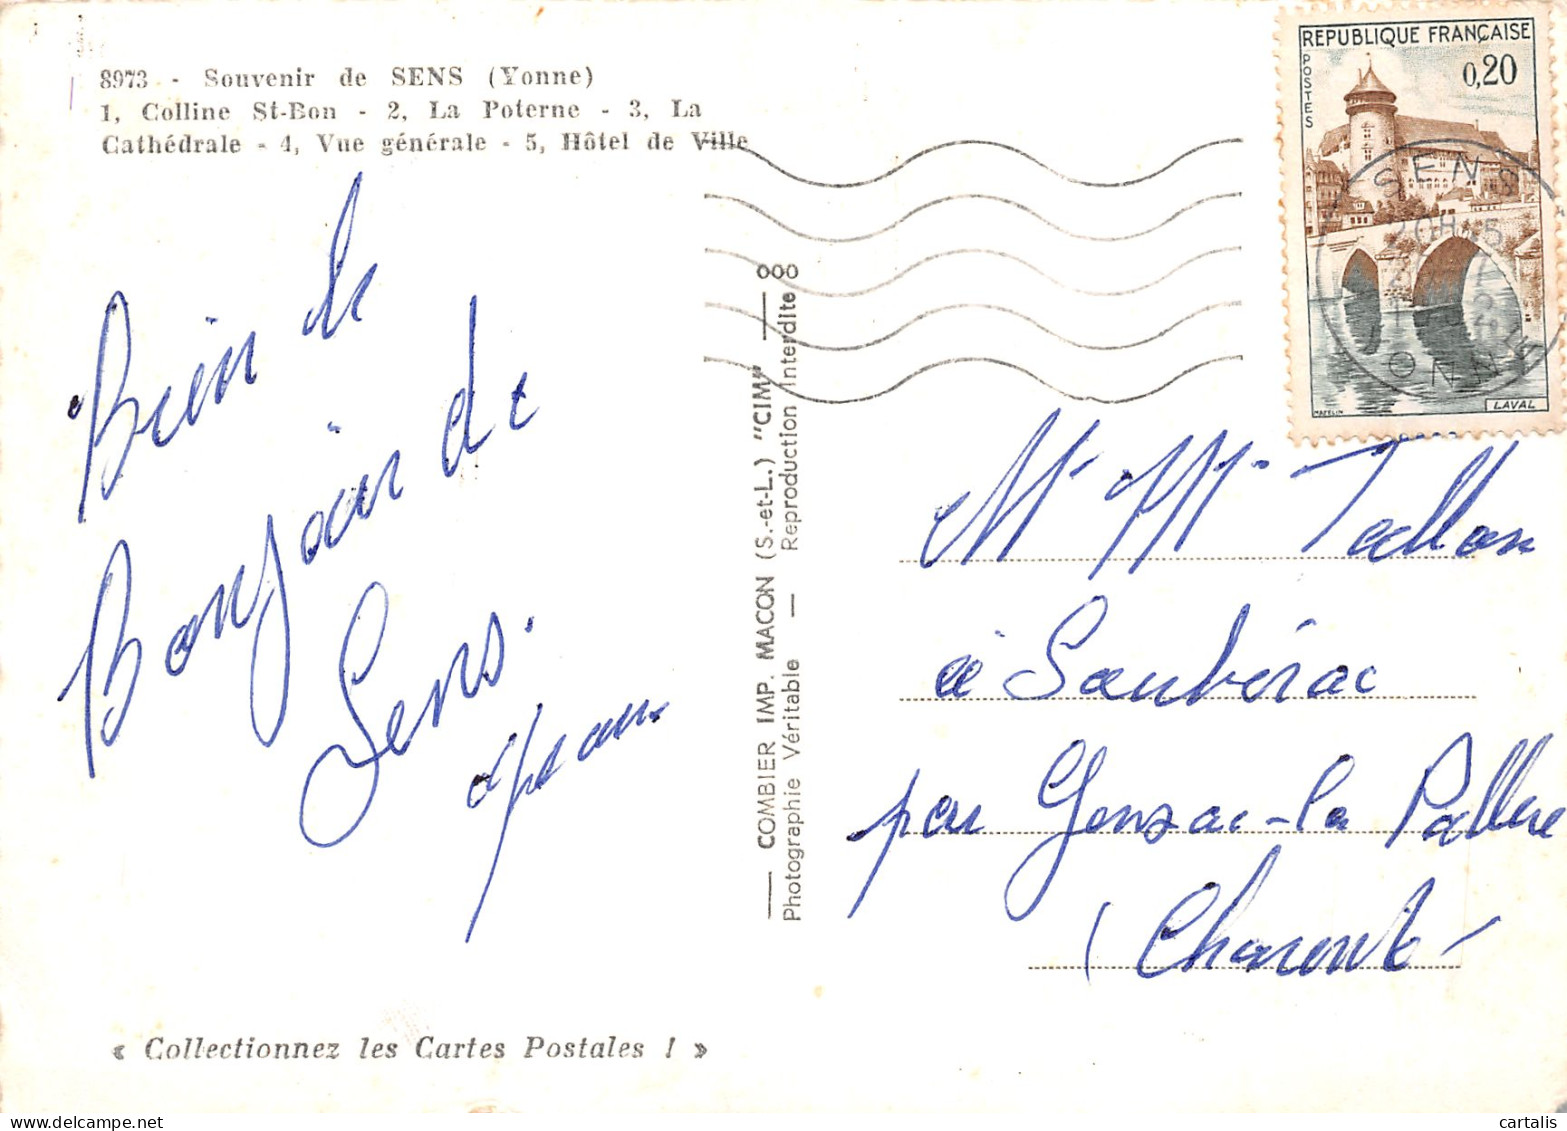 8973 - Souvenir de SENS (Yonne)
1, Colline St-Bon - 2, La Poterne - 3, La
Cathédrale - 4, Vue générale - 5, Hôtel de Ville
Bien le
Bonjour de
Sens.
« Collectionnez les Cartes Postales ! »
COMBIER IMP. MACON (S.-et-L.) "CIM" — 000
Photographie Véritable — Reproduction Interdite
REPUBLIQUE FRANÇAISE
POSTES
0,20
LAVAL
MAZELIN
SENS
YONNE
Mr Mme Tallon
à Saubérac
par Gensac-la Pallue
(Charente)
cartalis